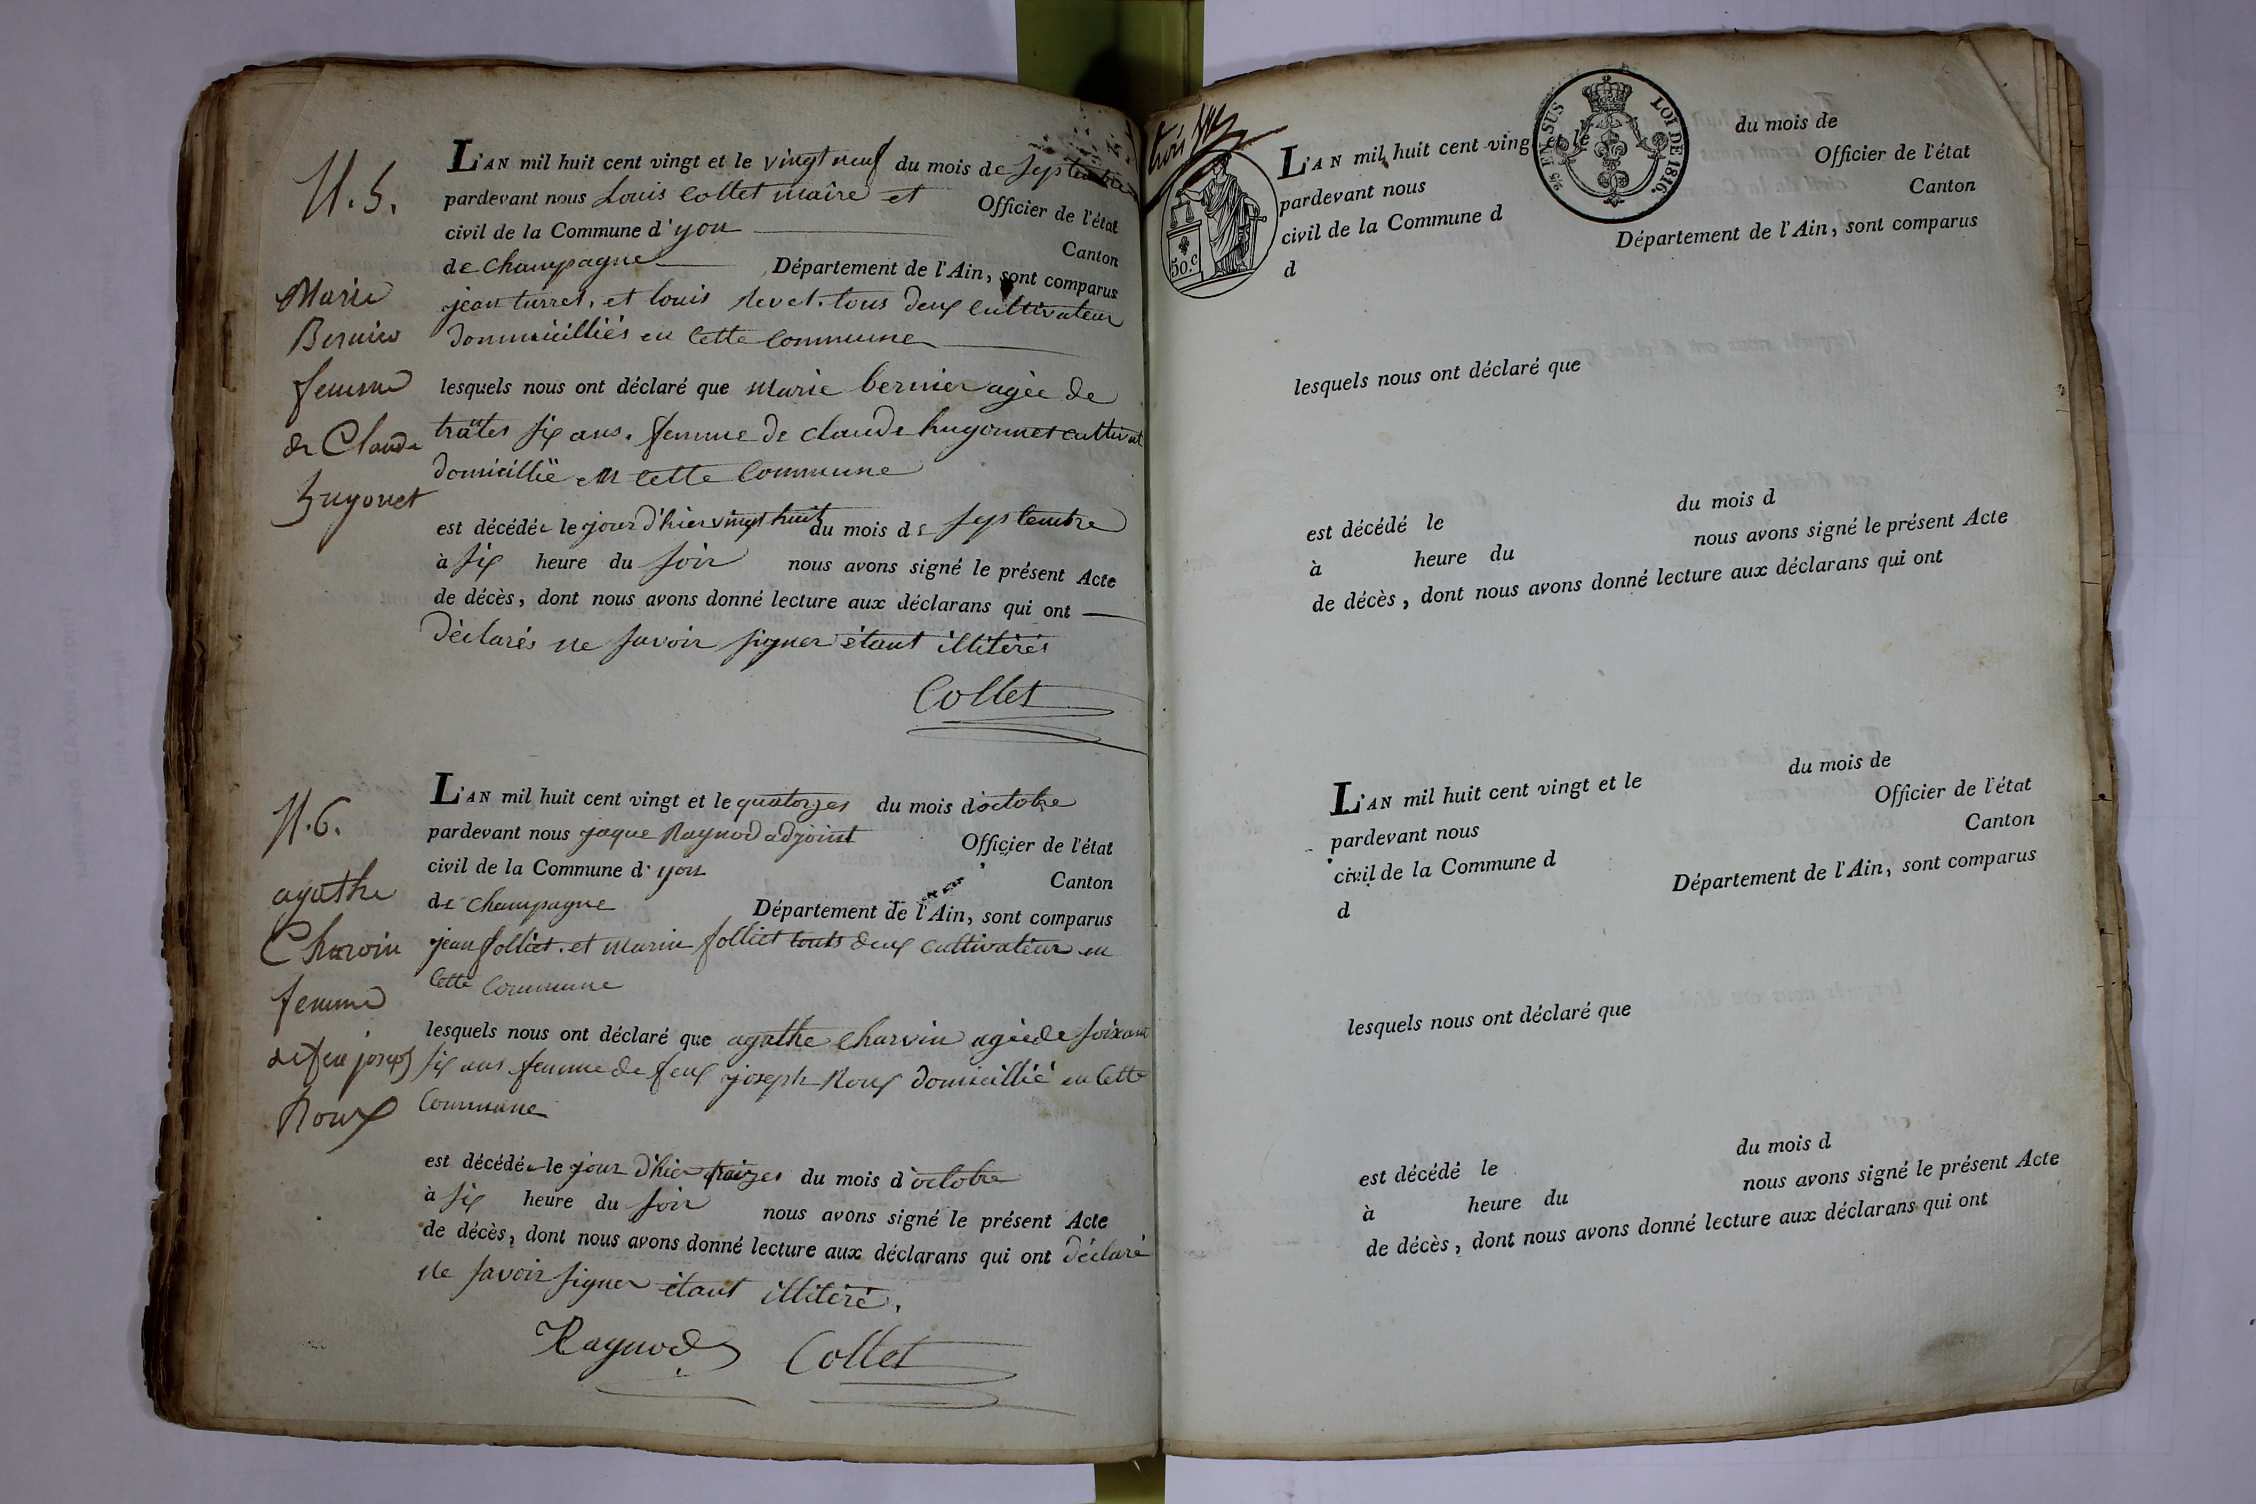 N.5.
Marie
Bernier
femme
de Claude
hugonet
L'AN mil huit cent vingt et le vingt neuf du mois de septembre
pardevant nous Louis Collet maire et Officier de l'état
civil de la Commune d'yon Canton
de champagne Département de l'Ain, sont comparus
jean turrel, et louis revel. tous deux cultivateur
dommicilliés en cette commune
lesquels nous ont déclaré que marie bernier agée de
six ans. femme de claude hugonnet cultivat
domicillié en cette commune
est décédée le jour d'hier vingt huit du mois de septembre
à six heure du soir nous avons signé le présent Acte
de décès, dont nous avons donné lecture aux déclarans qui ont
déclarés ne savoir signer étant illitérés
Collet
N.6.
agathe
Charvin
femme
de feu joseph
Roux
L'AN mil huit cent vingt et le quatorzes du mois d'octobre
pardevant nous jaque Raynod adjoint Officier de l'état
civil de la Commune d'yon Canton
de champagne Département de l'Ain, sont comparus
jean folliet. et marin folliet touts deux cultivateur en
cette commune
lesquels nous ont déclaré que agathe charvin agée de soixant
six ans femme de feux joseph Roux domicillié en cette
commune
est décédée le jour d'hier traizes du mois d'octobre
à six heure du soir nous avons signé le présent Acte
de décès, dont nous avons donné lecture aux déclarans qui ont déclaré
ne savoir signer étant illitéré.
Raynod Collet
trois
50.c
2/5 EN SUS LOI DE 1816.
L'AN mil huit cent ving et le du mois de
pardevant nous Officier de l'état
civil de la Commune d Canton
d Département de l'Ain, sont comparus
lesquels nous ont déclaré que
est décédé le du mois d
à heure du nous avons signé le présent Acte
de décès, dont nous avons donné lecture aux déclarans qui ont
L'AN mil huit cent vingt et le du mois de
pardevant nous Officier de l'état
civil de la Commune d Canton
d Département de l'Ain, sont comparus
lesquels nous ont déclaré que
est décédé le du mois d
à heure du nous avons signé le présent Acte
de décès, dont nous avons donné lecture aux déclarans qui ont